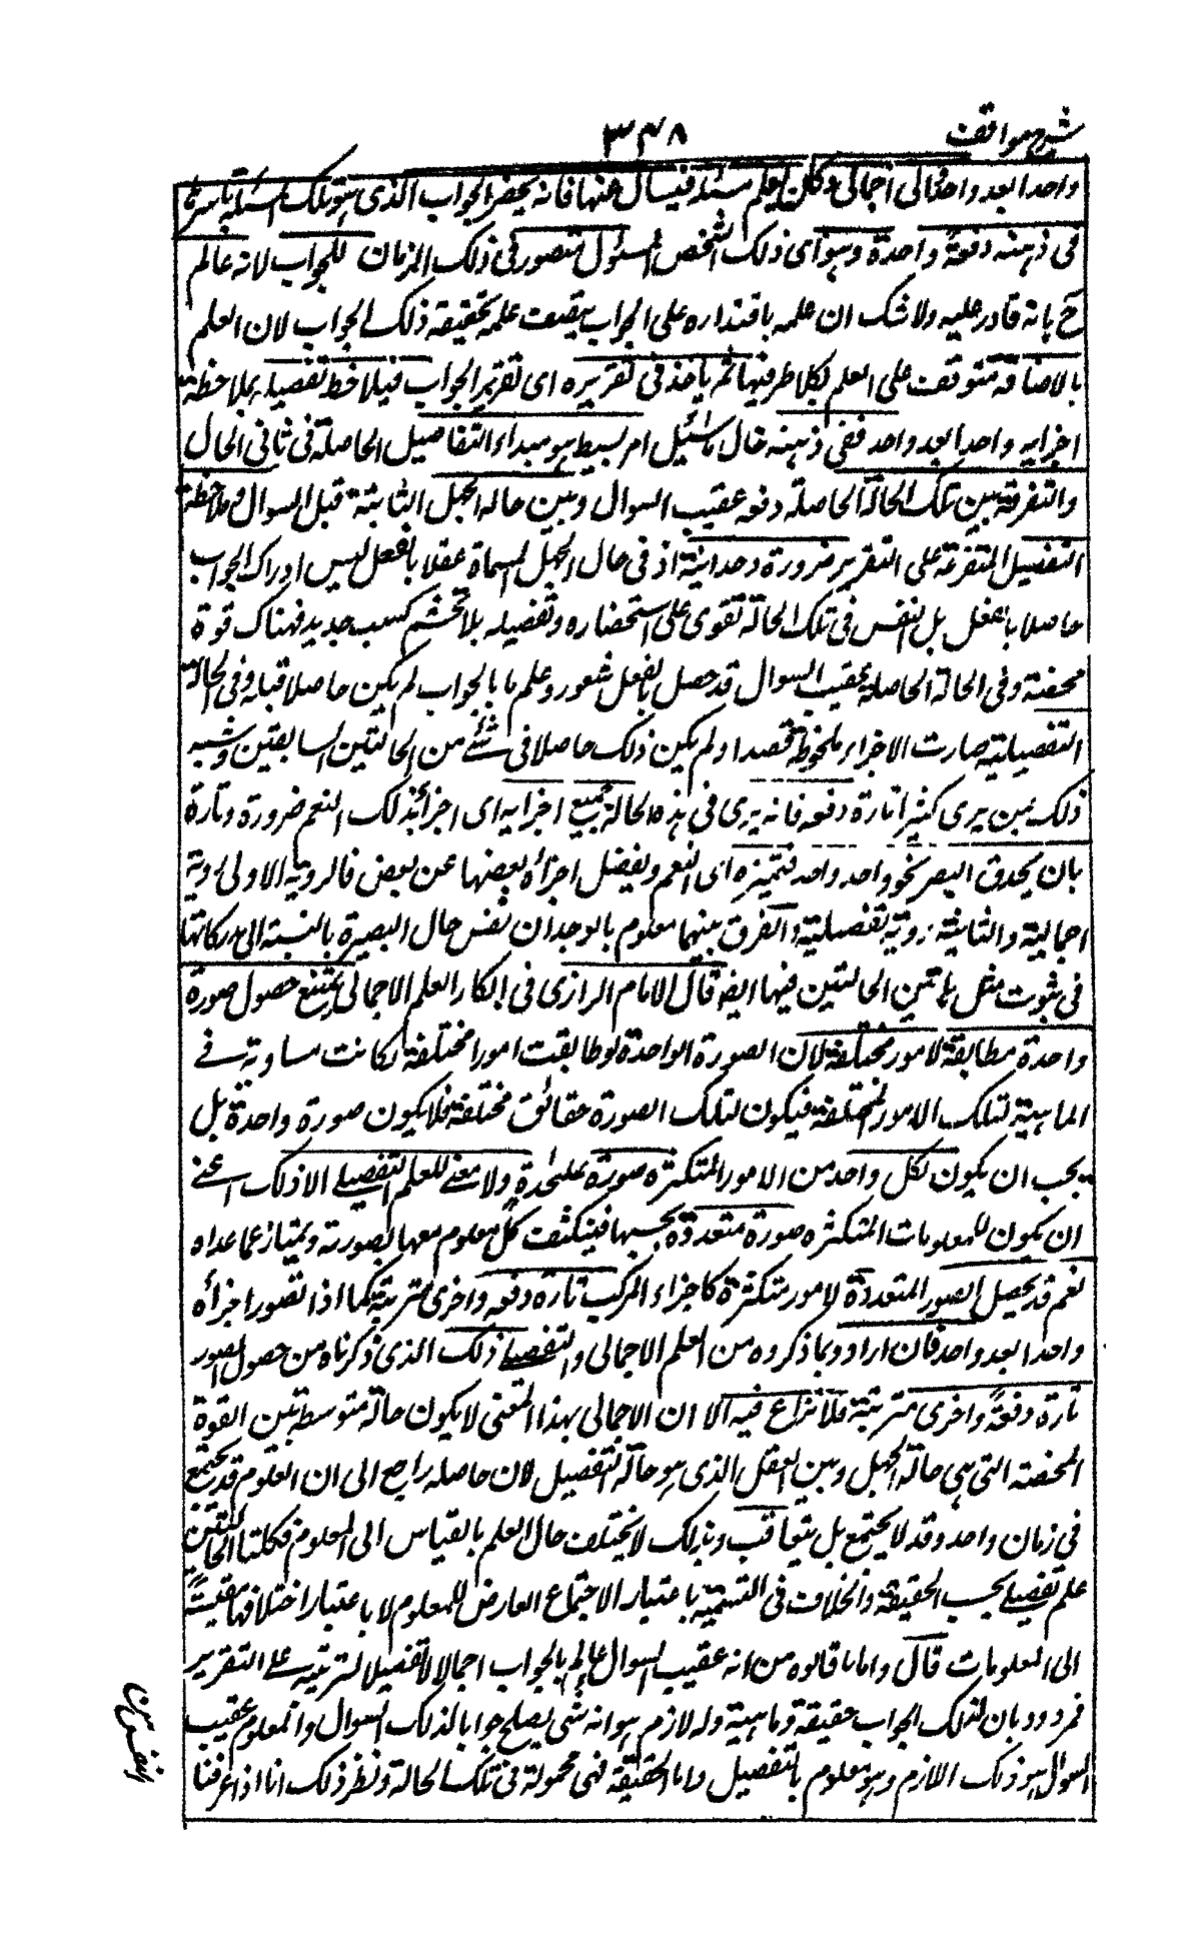 شرح مواقف
٣٤٨
واحدا بعد واحد والى اجمالى كمن يعلم مسئلة فيسأل عنها فانه يحضر الجواب الذى هو تلك المسئلة باسرها
فى ذهنه دفعةً واحدة وهو اى ذلك الشخص المسئول متصور فى ذلك الزمان للجواب لانه عالم
ح بانه قادر عليه ولا شك ان علمه باقتداره على الجواب يتضمن علمه بحقيقة ذلك الجواب لان العلم
بالاضافة متوقف على العلم بكلا طرفيها ثم ياخذ فى تقريره اى تقرير الجواب فيلاحظ تفصيله بملاحظة
اجزايه واحدا بعد واحد ففى ذهنه حال ما سئيل امر بسيط هو مبداء التفاصيل الحاصلة فى ثانى الحال
والتفرقة بين تلك الحالة الحاصلة دفعة عقيب السوال وبين حالة الجهل الثابتة قبل السوال وملاحظة
التفصيل المتفرعة على التقرير ضرورة وحدانية اذ فى حال الجهل المسماة عقلا بالفعل ليس ادراك الجواب
حاصلا بالفعل بل النفس فى تلك الحالة تقوى على استحضاره وتفصيله بلا تجشم كسب جديد فهناك قوة
محضة وفى الحالة الحاصلة عقيب السوال قد حصل بالفعل شعور وعلم ما بالجواب لم يكن حاصلا قبله وفى الحالة
التفصيلية صارت الاجزاء ملحوظة قصدا ولم يكن ذلك حاصلا فى شئ من الحالتين السابقتين وشبه
ذلك بمن يرى كثيرا تارة دفعة فانه يرى فى هذه الحالة جميع اجزايه اى اجزاء ذلك النعم ضرورة وتارة
بان يحدق البصر نحو واحد واحد فتميزه اى النعم ويفصل اجزأه بعضها عن بعض فالروية الاولى روية
اجمالية والثانية روية تفصيلية والفرق بينهما معلوم بالوجدان نفس حال البصيرة بالنسبة الى مدركاتها
فى ثبوت مثل هاتين الحالتين فيها ايضا قال الامام الرازى فى انكار العلم الاجمالى يمتنع حصول صورة
واحدة مطابقة لامور مختلفة لان الصورة الواحدة لو طابقت امورا مختلفة لكانت مساوية فى
الماهية لتلك الامور المختلفة فيكون لتلك الصورة حقائق مختلفة فلا يكون صورة واحدة بل
يجب ان يكون لكل واحد من الامور المتكثره صورة على حدة ولا معنى للعلم التفصيلے الا ذلك اعنے
ان يكون للمعلومات المتكثره صورة متعددة بحسبها فينكشف كل معلوم منها بصورته ويمتاز عما عداه
نعم قد يحصل الصور المتعددة لامور متكثرة كاجزاء المركب تارة دفعة واخرى مترتبة كما اذا تصور اجزأه
واحدا بعد واحد فان ارادوا بما ذكروه من العلم الاجمالى والتفصيلے ذلك الذى ذكرناه من حصول الصور
تارة دفعةً واخرى مترتبة فلا نزاع فيه الا ان الاجمالى بهذا المعنى لا يكون حالة متوسطة بين القوة
المحضة التى هى حالة الجهل وبين العقل الذى هو حالة التفصيل لان حاصله راجع الى ان العلوم قد يجتمع
فى زمان واحد وقد لا يجتمع بل يتعاقب وبذلك لا يختلف حال العلم بالقياس الى المعلوم فكلتا الحالتين
علم تفصيلے بحسب الحقيقة والخلاف فى التسمية باعتبار الاجتماع العارض للمعلوم لا باعتبار اختلافها مقيسة
الى المعلومات قال واما ما قالوه من انه عقيب السوال عالم بالجواب اجمالا لا تفصيلا لترتبه على التقرير
فمردود بان لذلك الجواب حقيقة وماهية وله لازم هو انه شئ يصلح جوابا لذلك السوال والمعلوم عقيب
السوال هو ذلك اللازم وهو معلوم بالتفصيل واما الحقيقة فهى مجهولة فى تلك الحالة ونظر ذلك انا اذا عرفنا